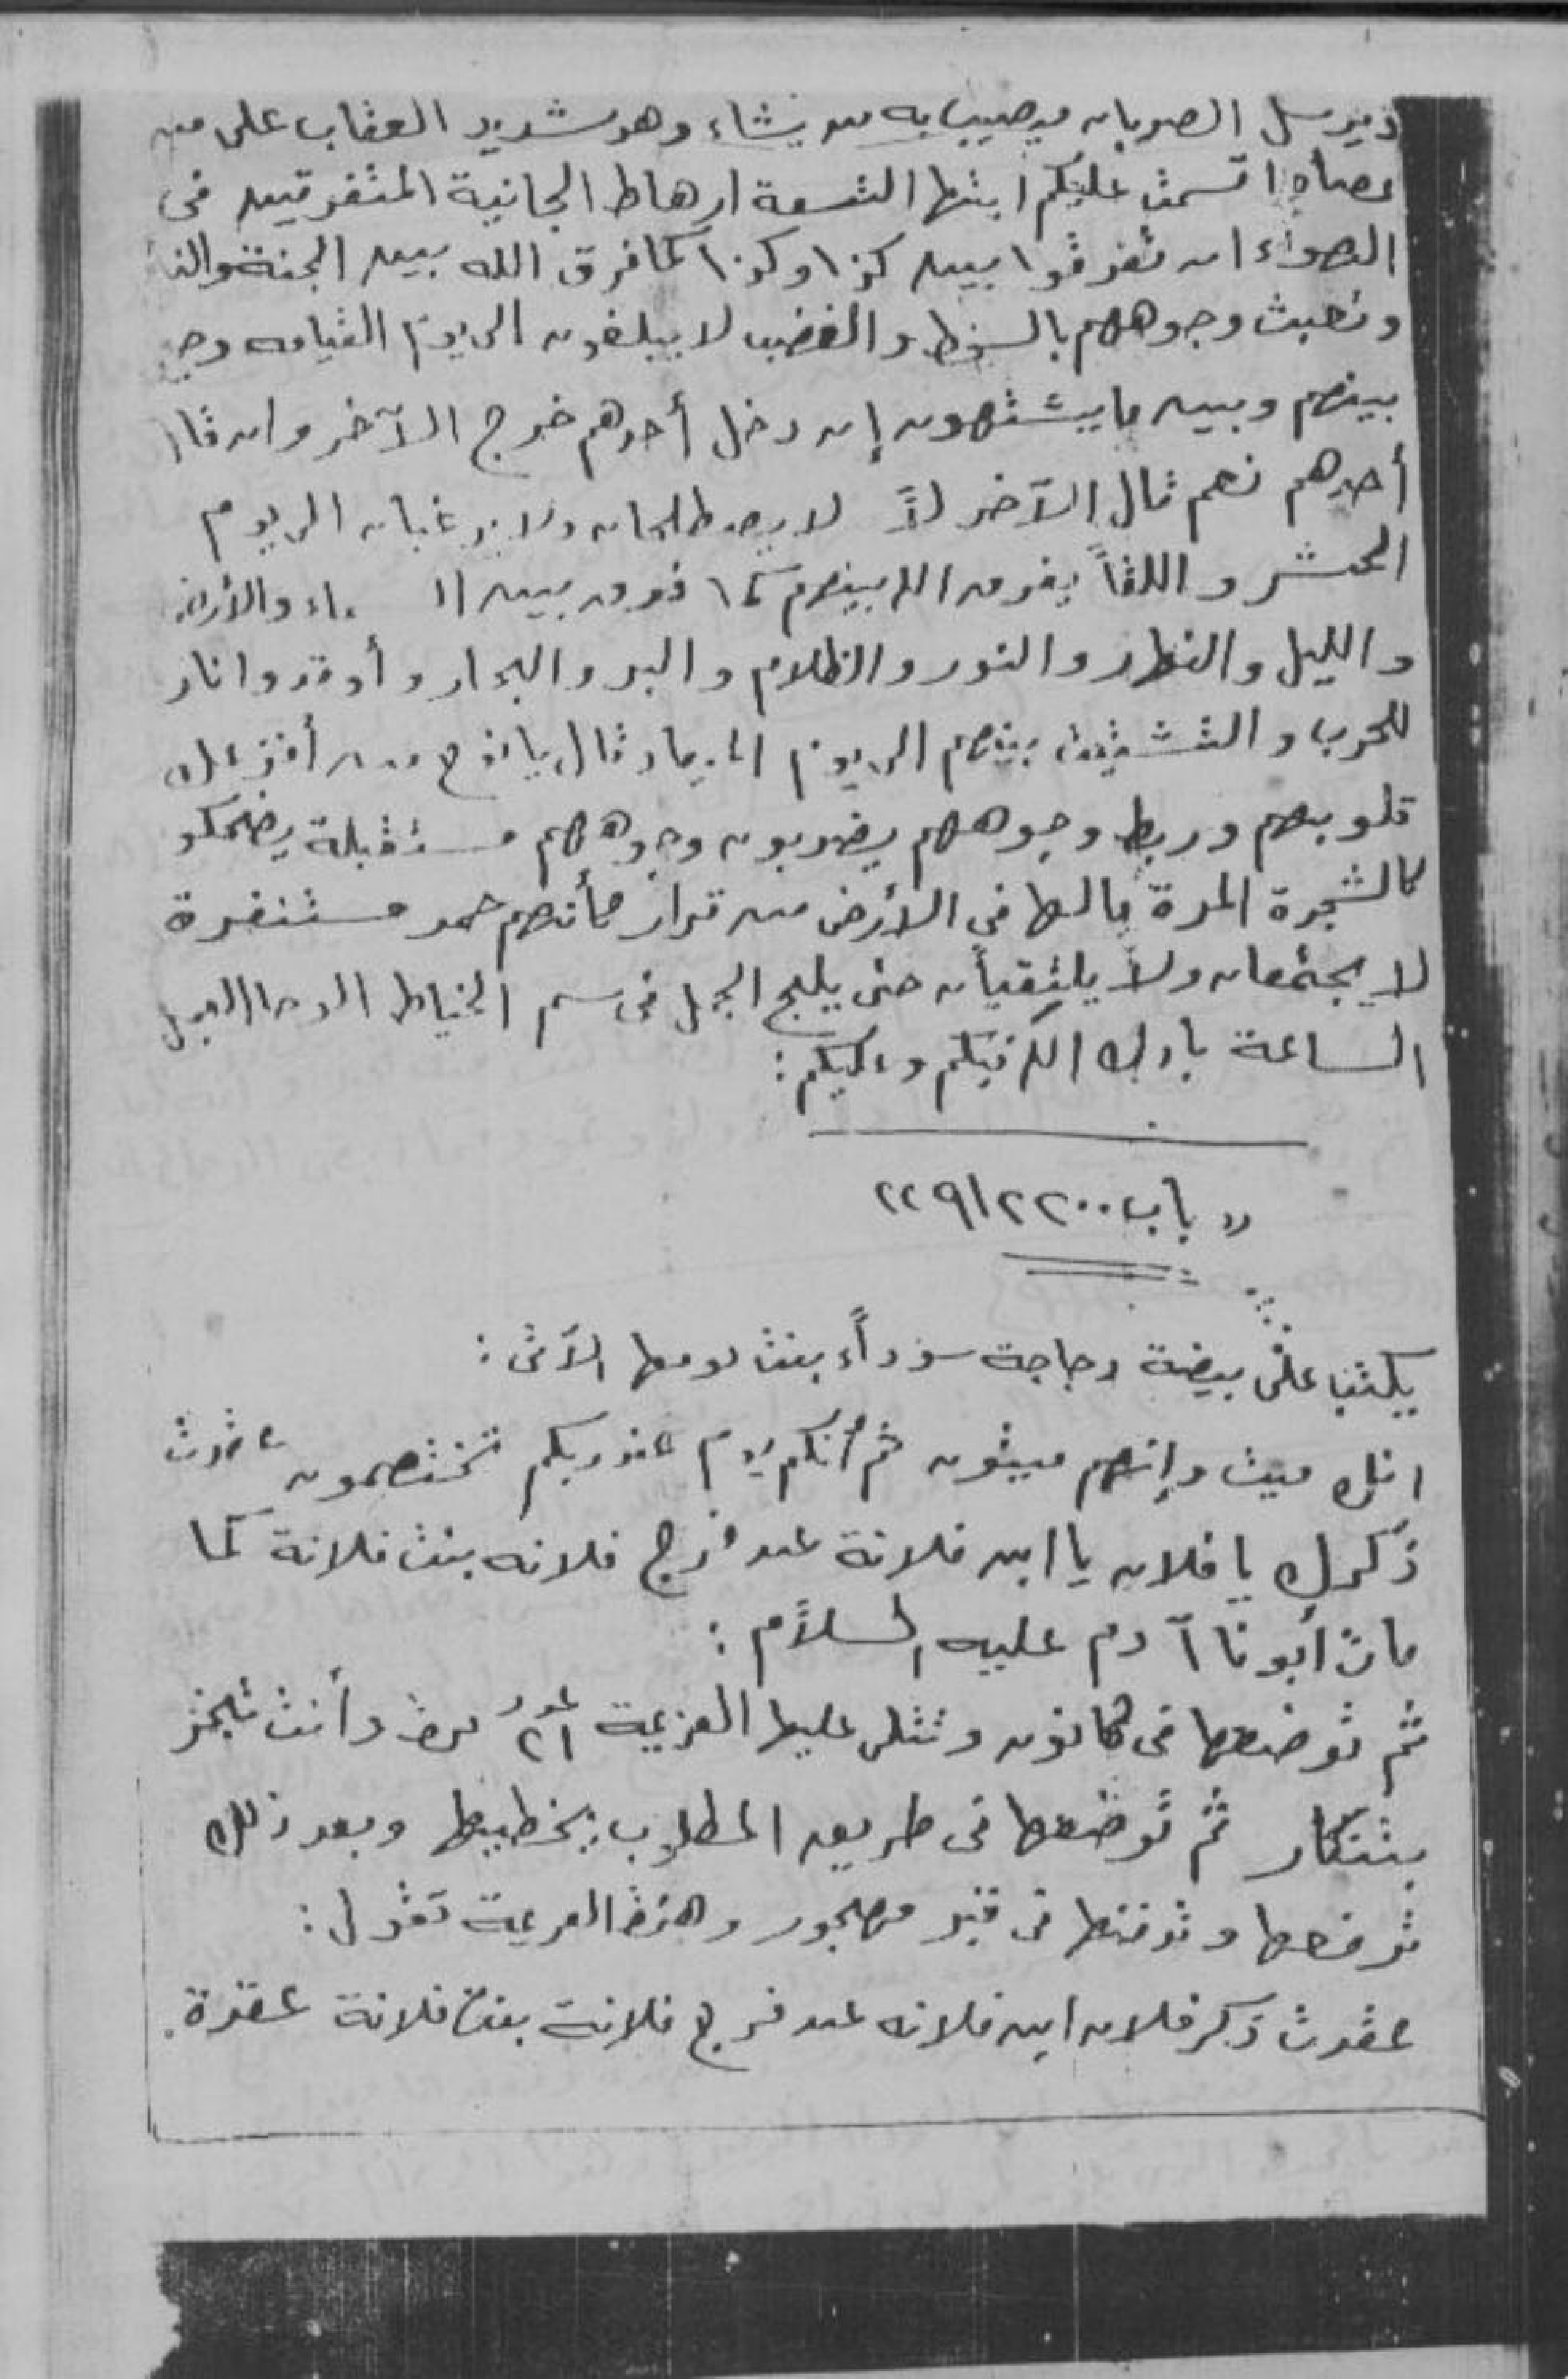 يرسل الصربان فيصيب به من يشاء وهو شديد العقاب على من
عصاه اقسمت عليكم ايتها التسعة ارهاط الجانية المتفرقين فى
الهواء ان تفرقوا بين كذا وكذا كما فرق الله بين الجنة والنا
وجوههم بالسخط والغضب لا يبلغون الى يوم القيامه
بينهم وبين ما يشتهون إن دخل أحدهم خرج الآخر وان قال
أحدهم نعم قال الآخر لاً لا يصطلحان ولا يرغبان الى يوم
الحشر واللقاً يفرق الله بينهم كما فرق بين والأرض
والليل والنهار والنور والظلام والبر والبحار وأوقدوا نار
للحرب والتشتيت بينهم الى يوم قال يا
قلوبهم وربط وجوههم يضربون وجوههم مستقبلة يضحكو
كالشجرة المرة مالها فى الأرض من قرار كأنهم حمر مستنفرة
لا يجتمعان ولا يلتقيان حتى يلج الجمل فى سم الخياط العجل
الساعة بارك الله فيكم وعليكم :
" باب ٢٢٩/٢٢٠٠
يكتب على بيضة دجاجة سوداء بنت يومها الآتى :
انك ميت وإنهم ميتون ثم أنكم يوم عند ربكم تختصمون عقدت
ذكرك يا فلان يا ابن فلانة عن فرج فلانه بنت فلانة كما
مات أبونا آدم عليه السلام :
ثم توضعها فى كانون وتتلى عليها العزيمة عدد ٢١ مرة وأنت تبخر
بتنكار ثم توضعها فى طريق المطلوب يخطيها وبعد ذلك
ترفعها وتدفنها فى قبر مهجور وهذه العزيمة تقول :
عقدت ذكر فلان ابن فلانه عن فرج فلانة بنت فلانة عقدة